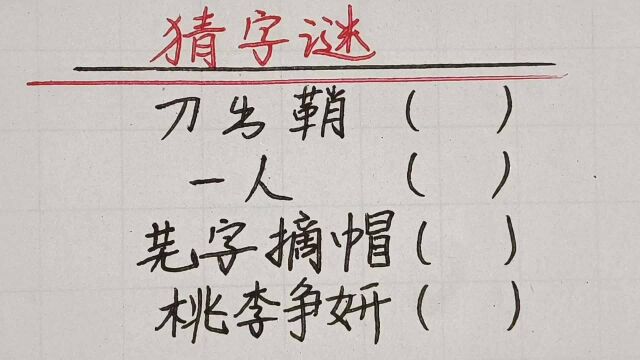 猜字谜
刀出鞘 ( )
一人 ( )
芜字摘帽 ( )
桃李争妍 ( )